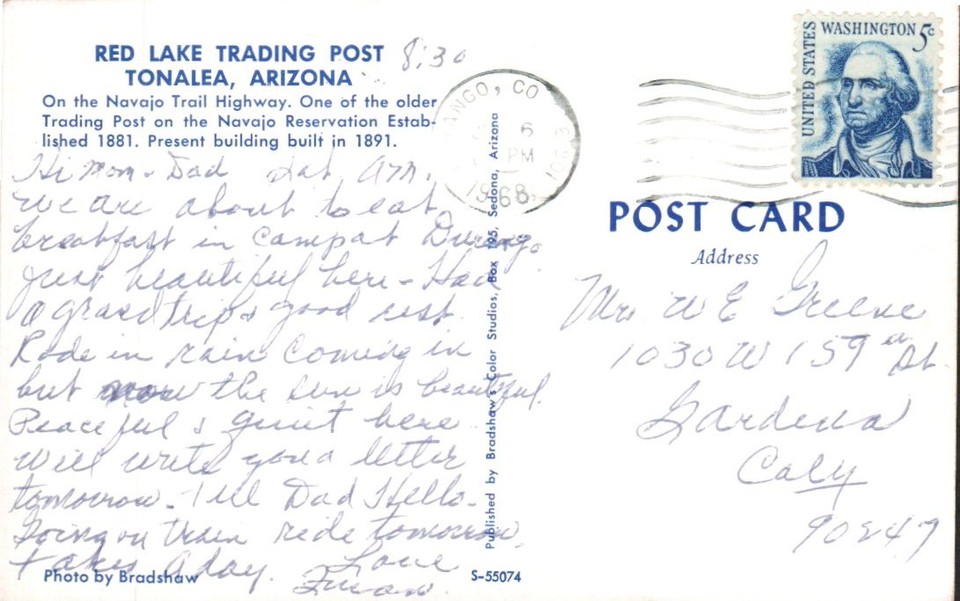 RED LAKE TRADING POST
TONALEA, ARIZONA
8:30
On the Navajo Trail Highway. One of the older
Trading Post on the Navajo Reservation Estab-
lished 1881. Present building built in 1891.
Hi Mom - Dad Sat. AM.
We are about to eat
breakfast in camp at
Just beautiful here - Had
a grand trip & good rest.
Rode in rain coming in
but now the sun is beautiful.
Peaceful & quiet here
will write you a letter
tomorrow - Tell Dad Hello -
Going on train ride tomorrow,
takes a day. Love
Photo by Bradshaw
S-55074
Published by Bradshaw's Color Studios, Box 195, Sedona, Arizona
ANGO, CO
6
PM
1968
UNITED STATES
WASHINGTON 5c
POST CARD
Address
Mrs W E Greene
1030 W 159 th St.
Gardena
Caly
90247